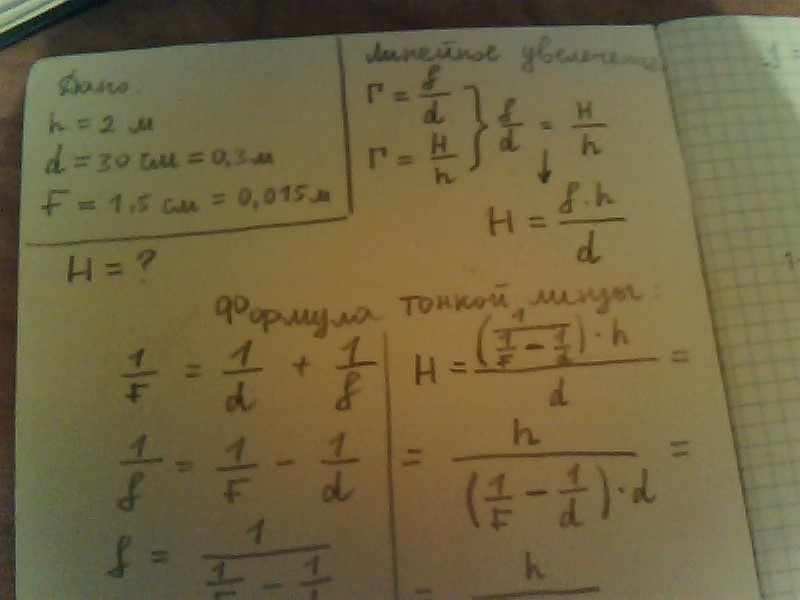 Дано:
h = 2 м
d = 30 см = 0,3 м
F = 1,5 см = 0,015 м
H = ?
линейное увеличение
Г = f/d } f/d = H/h
Г = H/h
↓
H = f·h/d
Формула тонкой линзы:
1/F = 1/d + 1/f
1/f = 1/F - 1/d
f = 1/(1/F - 1/d)
H = (1/(1/F - 1/d))·h/d =
= h/((1/F - 1/d)·d) =
= h